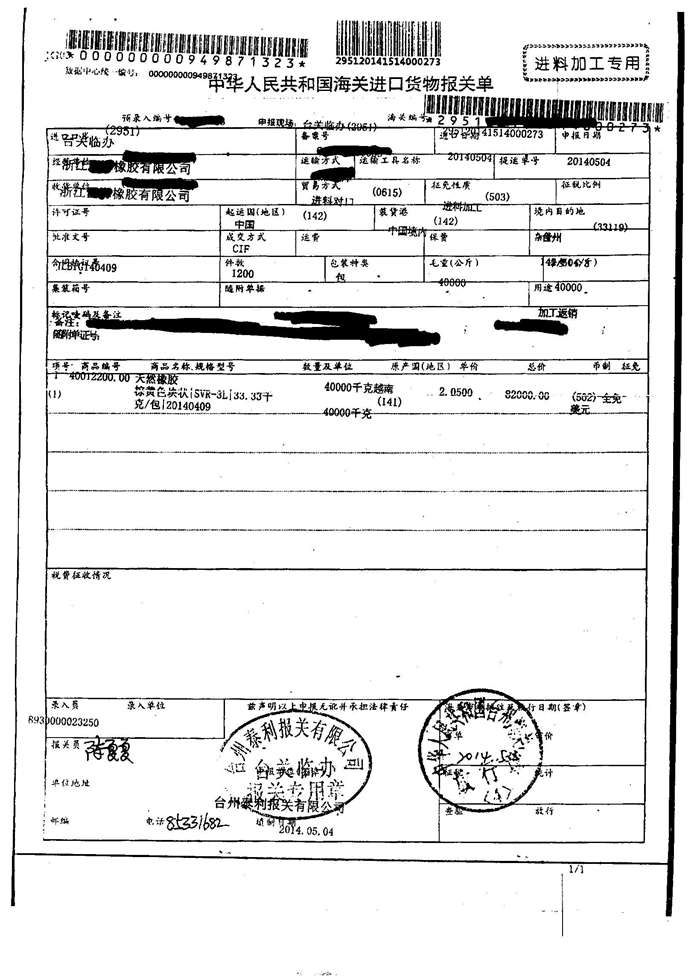 *000000000949871323*
295120141514000273
进料加工专用
数据中心统一编号: 000000000949871323
中华人民共和国海关进口货物报关单
预录入编号
申报现场: 台关临办(2951)
海关编号
进口口岸 (2951) 备案号 进口日期 申报日期
台关临办 20140504 20140504
经营单位 运输方式 运输工具名称 提运单号
浙江 橡胶有限公司
收货单位 贸易方式 (0615) 征免性质 (503) 征税比例
浙江 橡胶有限公司 进料对口 进料加工
许可证号 起运国(地区) (142) 装货港 (142) 境内目的地 (33119)
中国 中国境内
批准文号 成交方式 运费 保费 杂费
CIF
合同协议号 件数 包装种类 毛重(公斤)
1200 包 40000
集装箱号 随附单据 用途
加工返销
标记唛码及备注
备注:
随附单证号:
项号 商品编号 商品名称、规格型号 数量及单位 原产国(地区) 单价 总价 币制 征免
1 40012200.00 天然橡胶 40000千克 越南 2.0500 82000.00 (502) 全免
(1) 棕黄色块状|SVR-3L|33.33千 (141) 美元
克/包|20140409 40000千克
税费征收情况
录入员 录入单位 兹声明以上申报无讹并承担法律责任
8930000023250
报关员
单位地址
台州泰利报关有限公司
台关临办
报关专用章
台州泰利报关有限公司
邮编 电话 85331682 填制日期
2014.05.04
统计
查验 放行
1/1